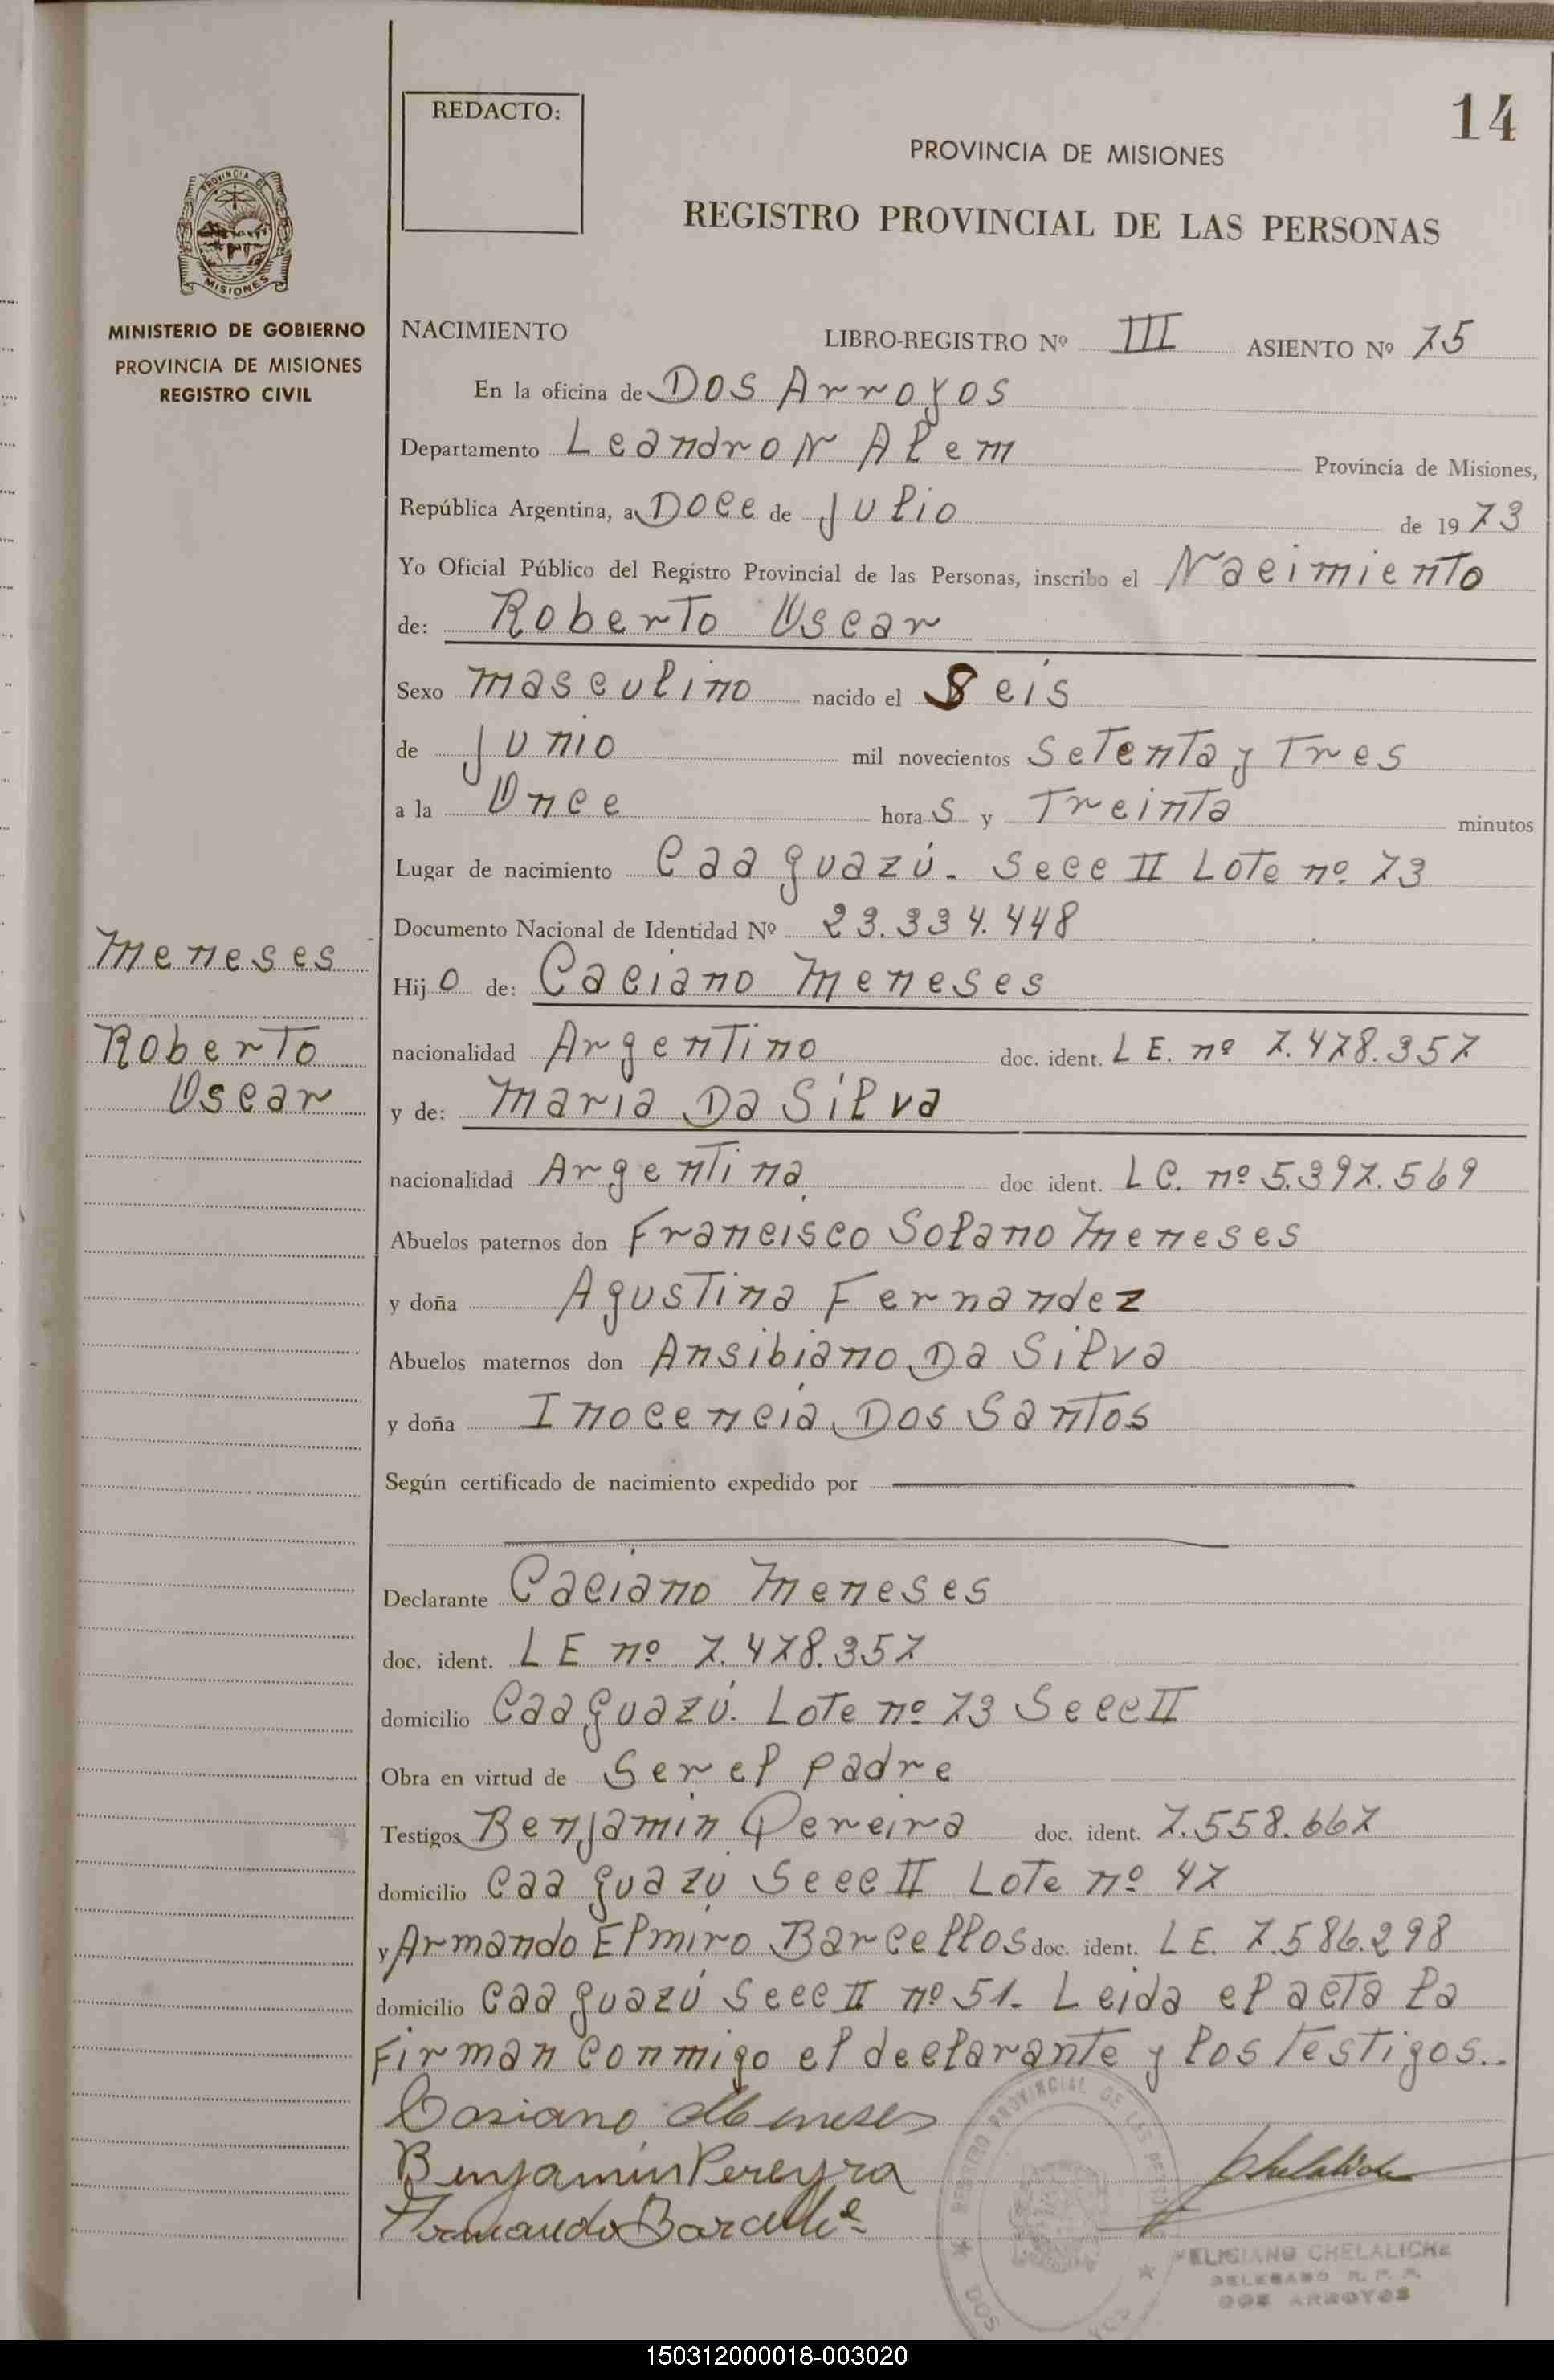 REDACTO:
14
PROVINCIA DE MISIONES
REGISTRO PROVINCIAL DE LAS PERSONAS
PROVINCIA DE
MISIONES
MINISTERIO DE GOBIERNO
PROVINCIA DE MISIONES
REGISTRO CIVIL
NACIMIENTO LIBRO-REGISTRO Nº III ASIENTO Nº 75
En la oficina de Dos Arroyos
Departamento Leandro N Alem Provincia de Misiones,
República Argentina, a Doce de Julio de 1973
Yo Oficial Público del Registro Provincial de las Personas, inscribo el Nacimiento
de: Roberto Oscar
Sexo masculino nacido el Seis
de Junio mil novecientos Setenta y Tres
a la Once horas y Treinta minutos
Lugar de nacimiento Caa guazú. Secc II Lote nº 73
Documento Nacional de Identidad Nº 23.334.448
Meneses
Hijo de: Caciano Meneses
Roberto
Oscar
nacionalidad Argentino doc. ident. L E. nº 7.478.357
y de: Maria Da Silva
nacionalidad Argentina doc ident. L C. nº 5.397.569
Abuelos paternos don Francisco Solano Meneses
y doña Agustina Fernandez
Abuelos maternos don Ansibiano Da Silva
y doña Inocencia Dos Santos
Según certificado de nacimiento expedido por
Declarante Caciano Meneses
doc. ident. L E nº 7.478.357
domicilio Caa guazú. Lote nº 73 Secc II
Obra en virtud de Ser el padre
Testigos Benjamin Pereira doc. ident. 7.558.667
domicilio Caa guazú Secc II Lote nº 47
y Armando Elmiro Barcellos doc. ident. L E. 7.586.298
domicilio Caa guazú Secc II nº 51. Leida el acta la
Firman conmigo el declarante y los Testigos..
Casiano Meneses
Benjamin Pereyra
Armando Barcellos
REGISTRO PROVINCIAL DE LAS PERSONAS
DOS ARROYOS
FELICIANO CHELALICHE
DELEGADO R. P. P.
DOS ARROYOS
150312000018-003020